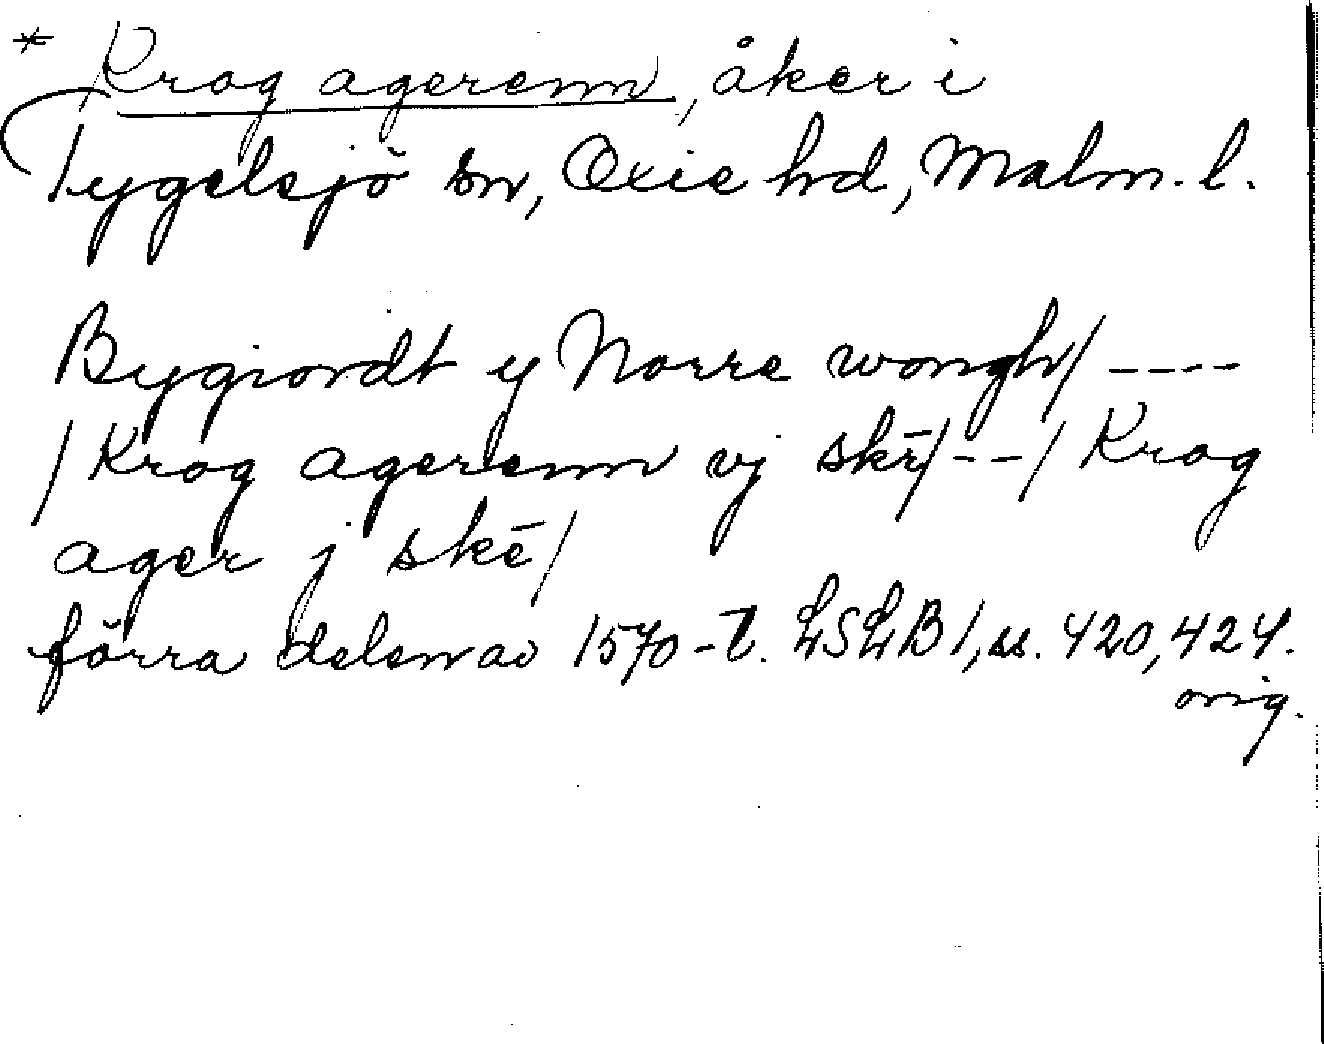 * Krog agerenn, åker i
Tygelsjö sn, Oxie hd, Malm. l.
Bygiordt y Norre wongh/ ----
/ Krog agerenn vj skē/ -- / Krog
ager j skē/
förra delen av 1570-t. LSLB 1, ss. 420, 424.
orig.